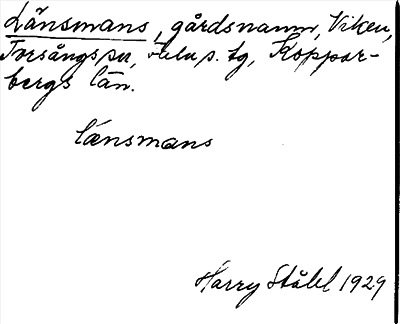 Länsmans, gårdsnamn, Viken,
Torsångs sn, Falu s. tg, Koppar-
bergs län.
länsmans
Harry Ståhl 1929